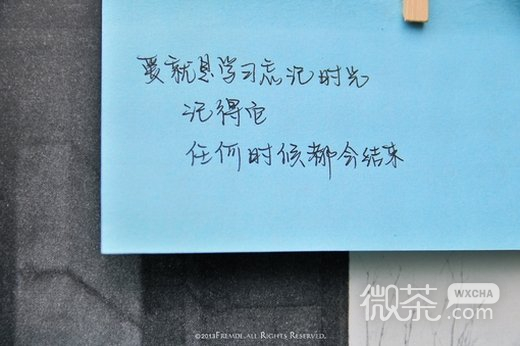 爱就是学习忘记时光
记得它
任何时候都会结束
微茶
WXCHA
.COM
©2013FREMDI.ALL RIGHTS RESERVED.